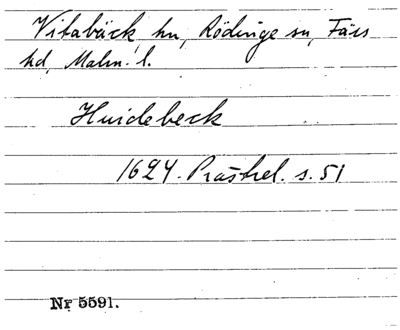 Vitabäck, hn, Rödinge sn, Färs
hd, Malm. l.
Huidebeck
1624. Prästrel. s. 51
Nr 5591.